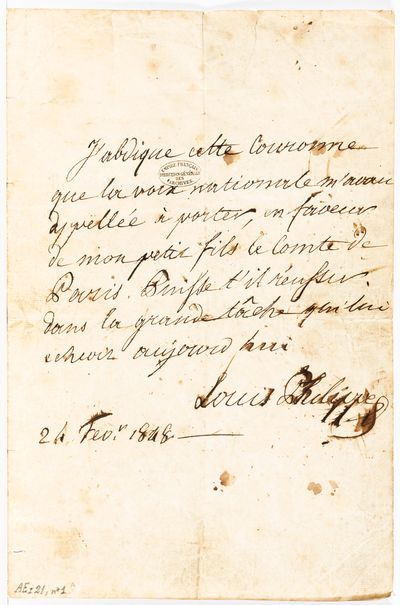 J'abdique cette Couronne
EMPIRE FRANÇAIS
DIRECTION GÉNÉRALE
DES
ARCHIVES
que la voix nationale m'avait
appellée à porter, en faveur
de mon petit fils le Comte de
Paris. Puisse t'il réussir
dans la grande tâche qui lui
echoit aujourd'hui
Louis Philippe
24 Fev.r 1848
AE I 21, n° 1